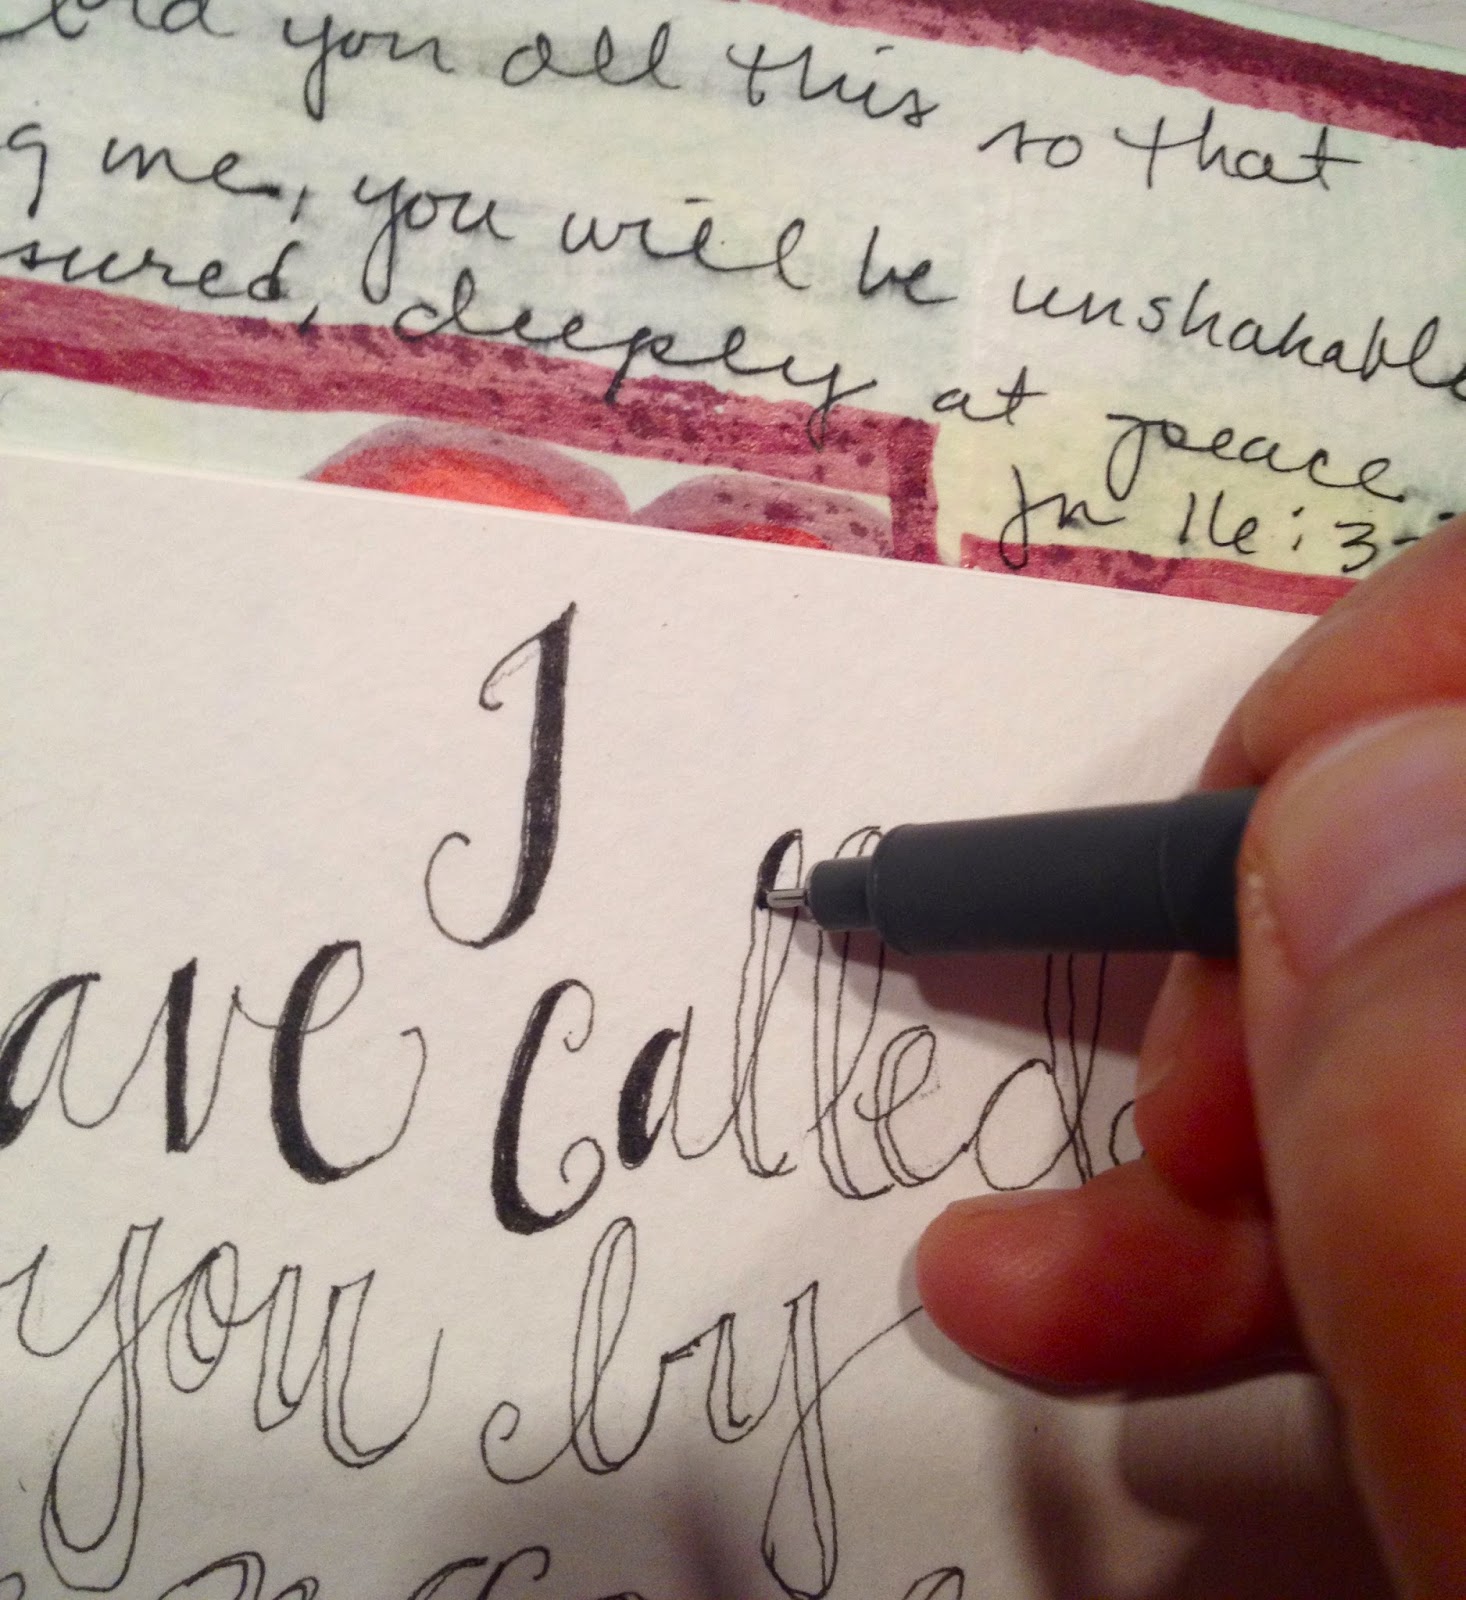 told you all this so that
g me, you will be unshakable
sured, deeply at peace
Jn 16:3
I
ave called
you by